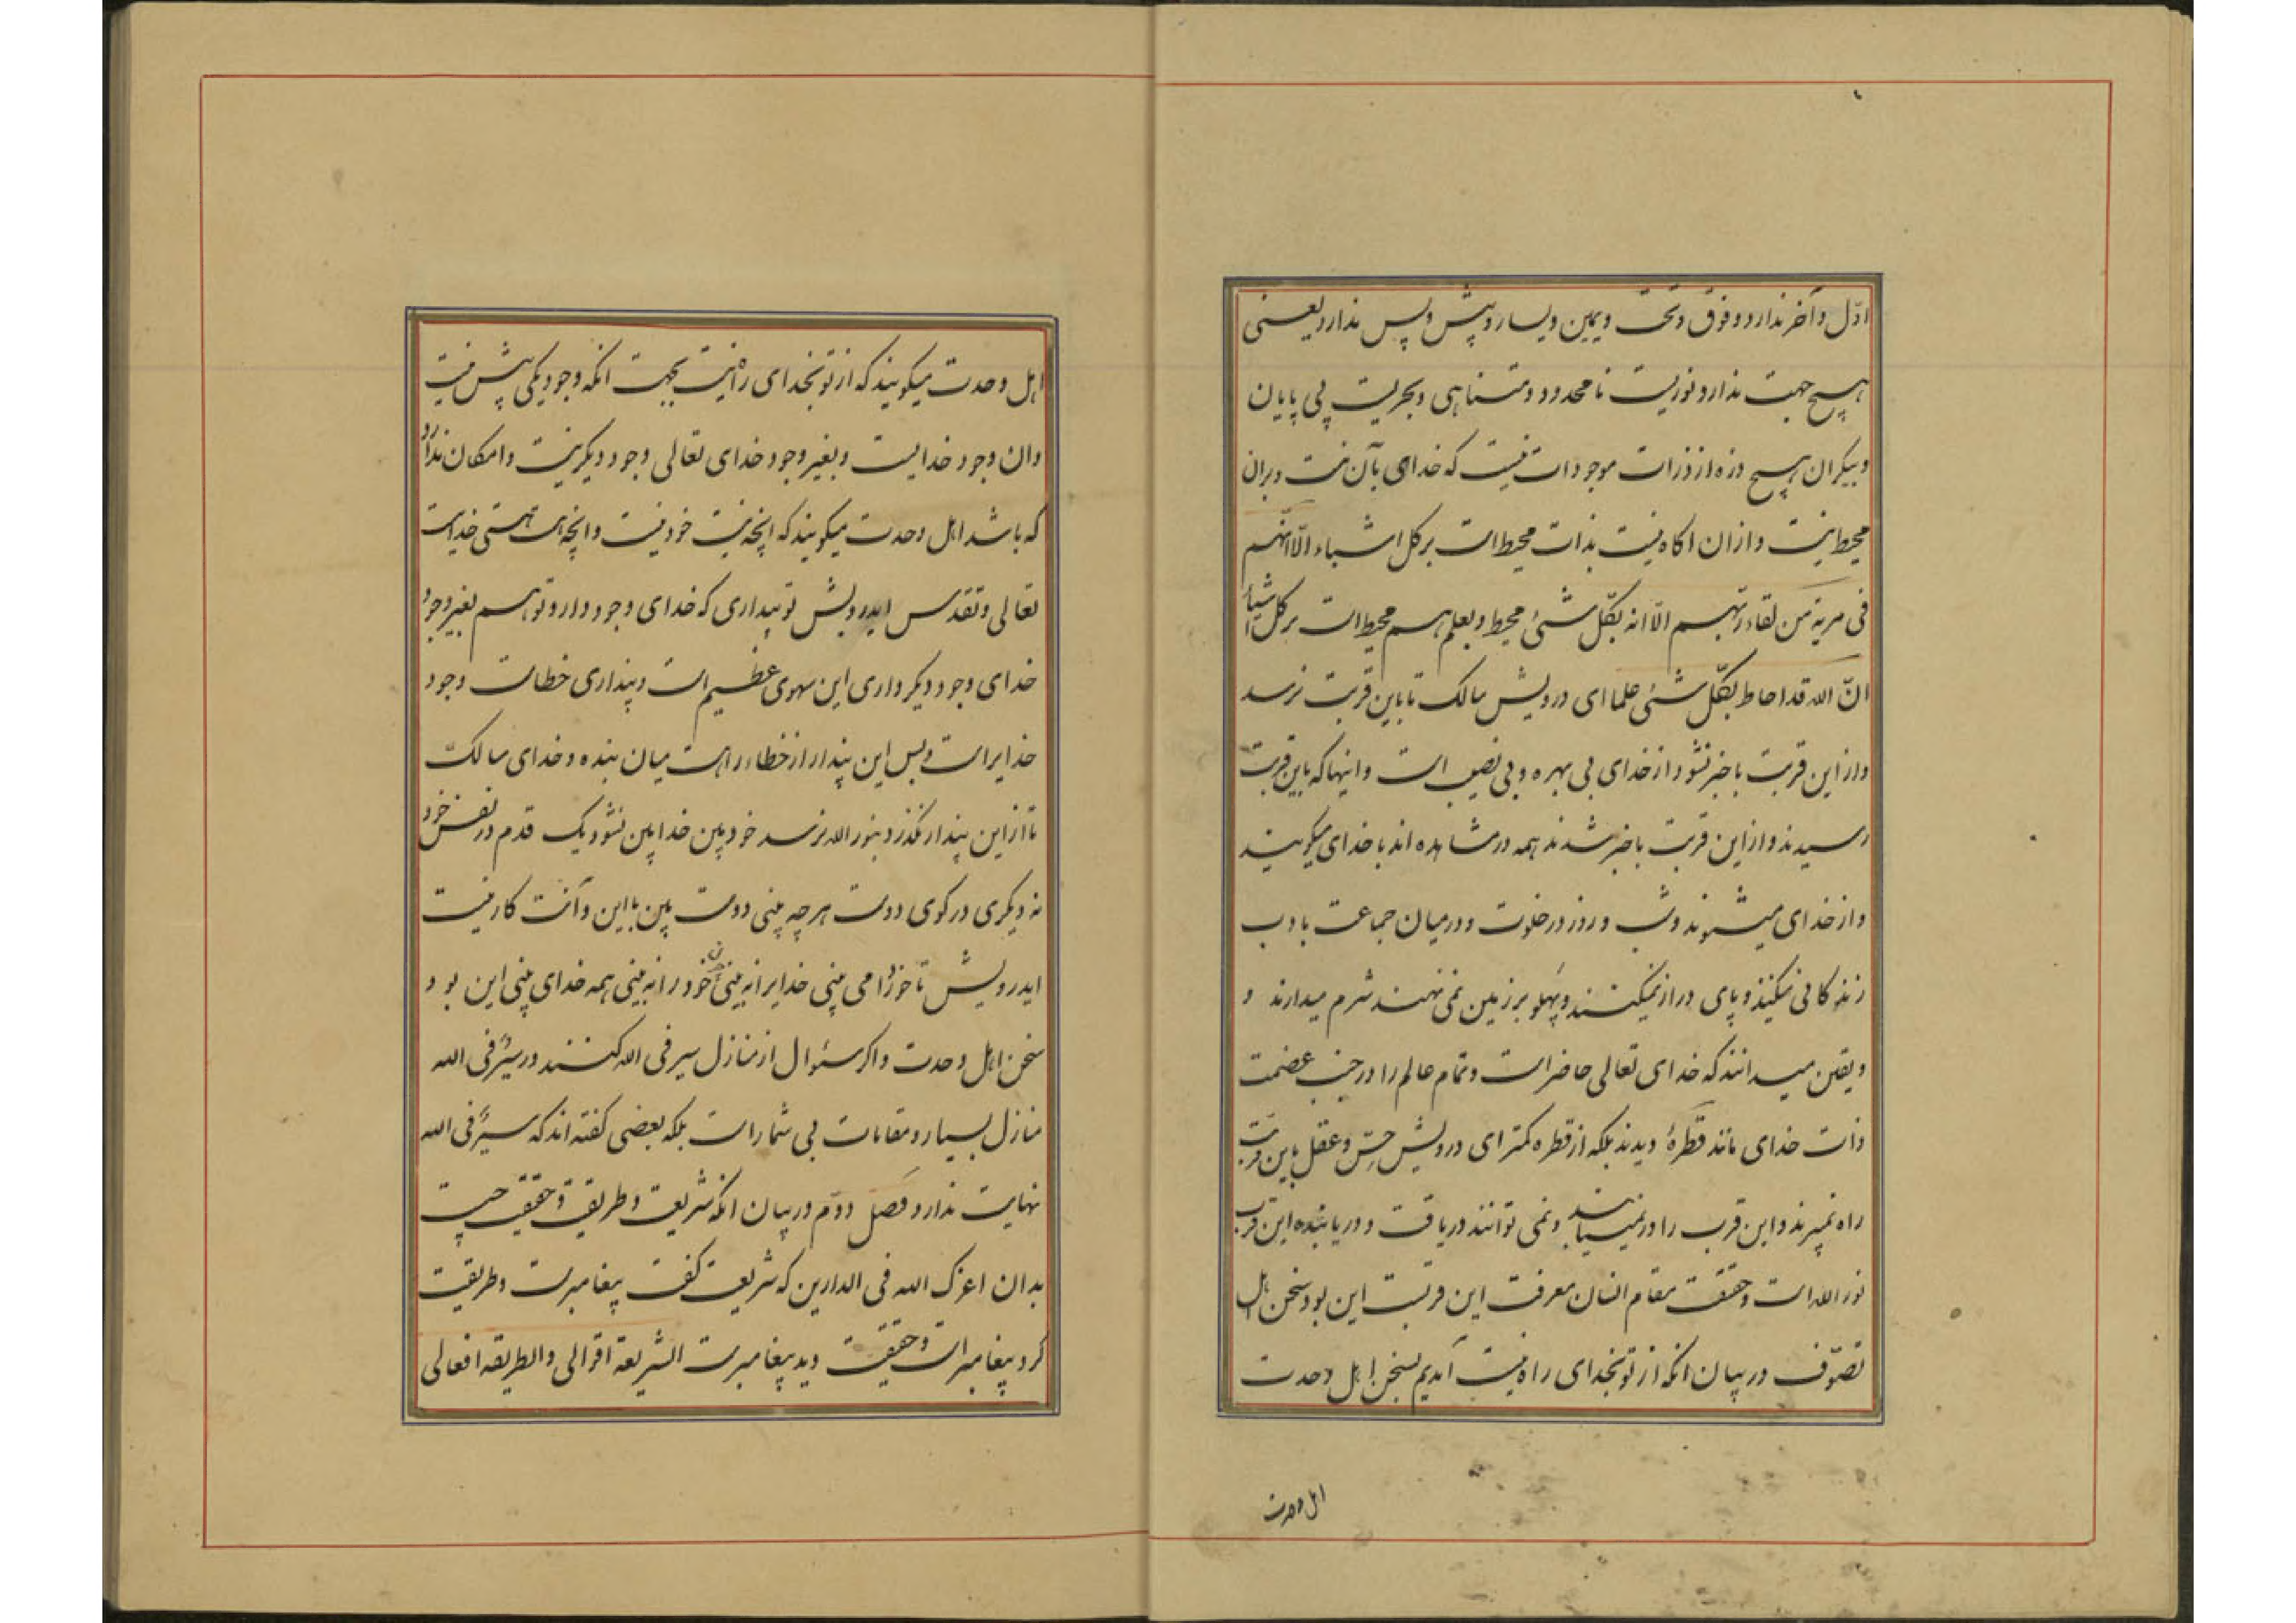 اوّل و آخر ندارد و فوق و تحت و یمین و یسار و پیش و پس ندارد یعنی
هیچ جهت ندارد نوریست نامحدود و متناهی و بحریست بی پایان
و بیکران هیچ ذره از ذرات موجودات نیست که خدای بآن نیست و بران
محیط نیست و ازان اکاه نیست بذات محیط است بر کل اشیاء الّا انّهم
فی مریة من لقاء ربّهم الّا انه بکلّ شئ محیط و بعلم هم محیط است بر کل اشیأ
انّ الله قد احاط بکلّ شئی علما ای درویش سالک تا باین قربت نرسد
و از این قربت با خبر نشود از خدای بی بهره و بی نصیب است و اینها که باین قربت
رسیدند و از این قربت با خبر شدند همه در مشاهده اند با خدای میکویند
و از خدای میشنوند و شب و روز در خلوت و در میان جماعت با ادب
زندکانی میکنند و پای دراز نمیکنند و پهلو بر زمین نمی نهند شرم میدارند و
و یقین میدانند که خدای تعالی حاضر است و تمام عالم را در جنب عضمت
ذات خدای مانند قطرهٔ دیدند بلکه از قطره کمتر ای درویش حسّ و عقل باین قربت
راه نمیبرند و این قرب را در نمییابند و نمی توانند دریافت و دریابنده این قرب
نور الله است و حقیقت مقام انسان معرفت این قربتست این بود سخن اهل
تصوّف در بیان انکه از تو بخدای راه نیست آمدیم بسخن اهل وحدت
اهل وحدت
اهل وحدت میکویند که از تو بخدای راه نیست بجهت انکه وجود یکی بیش نیست
و ان وجود خدایست و بغیر وجود خدای تعالی وجود دیکر نیست و امکان ندارد
که باشد اهل وحدت میکویند که انچه نیست خود نیست و انچه هست هستی خداست
تعالی و تقدس ایدرویش تو پنداری که خدای وجود دارد و تو هم بغیر وجود
خدای وجود دیکر داری این سهوی عظیم است و پنداری خطاست وجود
خدایراست و بس این پندار از خطاء راهست میان بنده و خدای سالکّ
تا از این پندار نکذرد بنور الله نرسد خود بین خدا بین نشود یک قدم در نفس خود
نه دیکری در کوی دوست هر چه بینی دوست بین با این و آنت کار نیست
ایدرویش تا خود را می بینی خدایرا نه بینی چون خود را نه بینی همه خدای بینی این بود
سخن اهل وحدت و اکر سئوال از منازل سیر فی الله کنند در سیر فی الله
منازل بسیار و مقامات بی شمار است بلکه بعضی کفته اند که سیر فی الله
نهایت ندارد فصل دوّم در بیان انکه شریعت و طریقت و حقیقت چیست
بدان اعزک الله فی الدارین که شریعت کفت پیغامبرست و طریقت
کرد پیغامبر است و حقیقت دید پیغامبرست الشریعة اقوالی و الطریقه افعالی